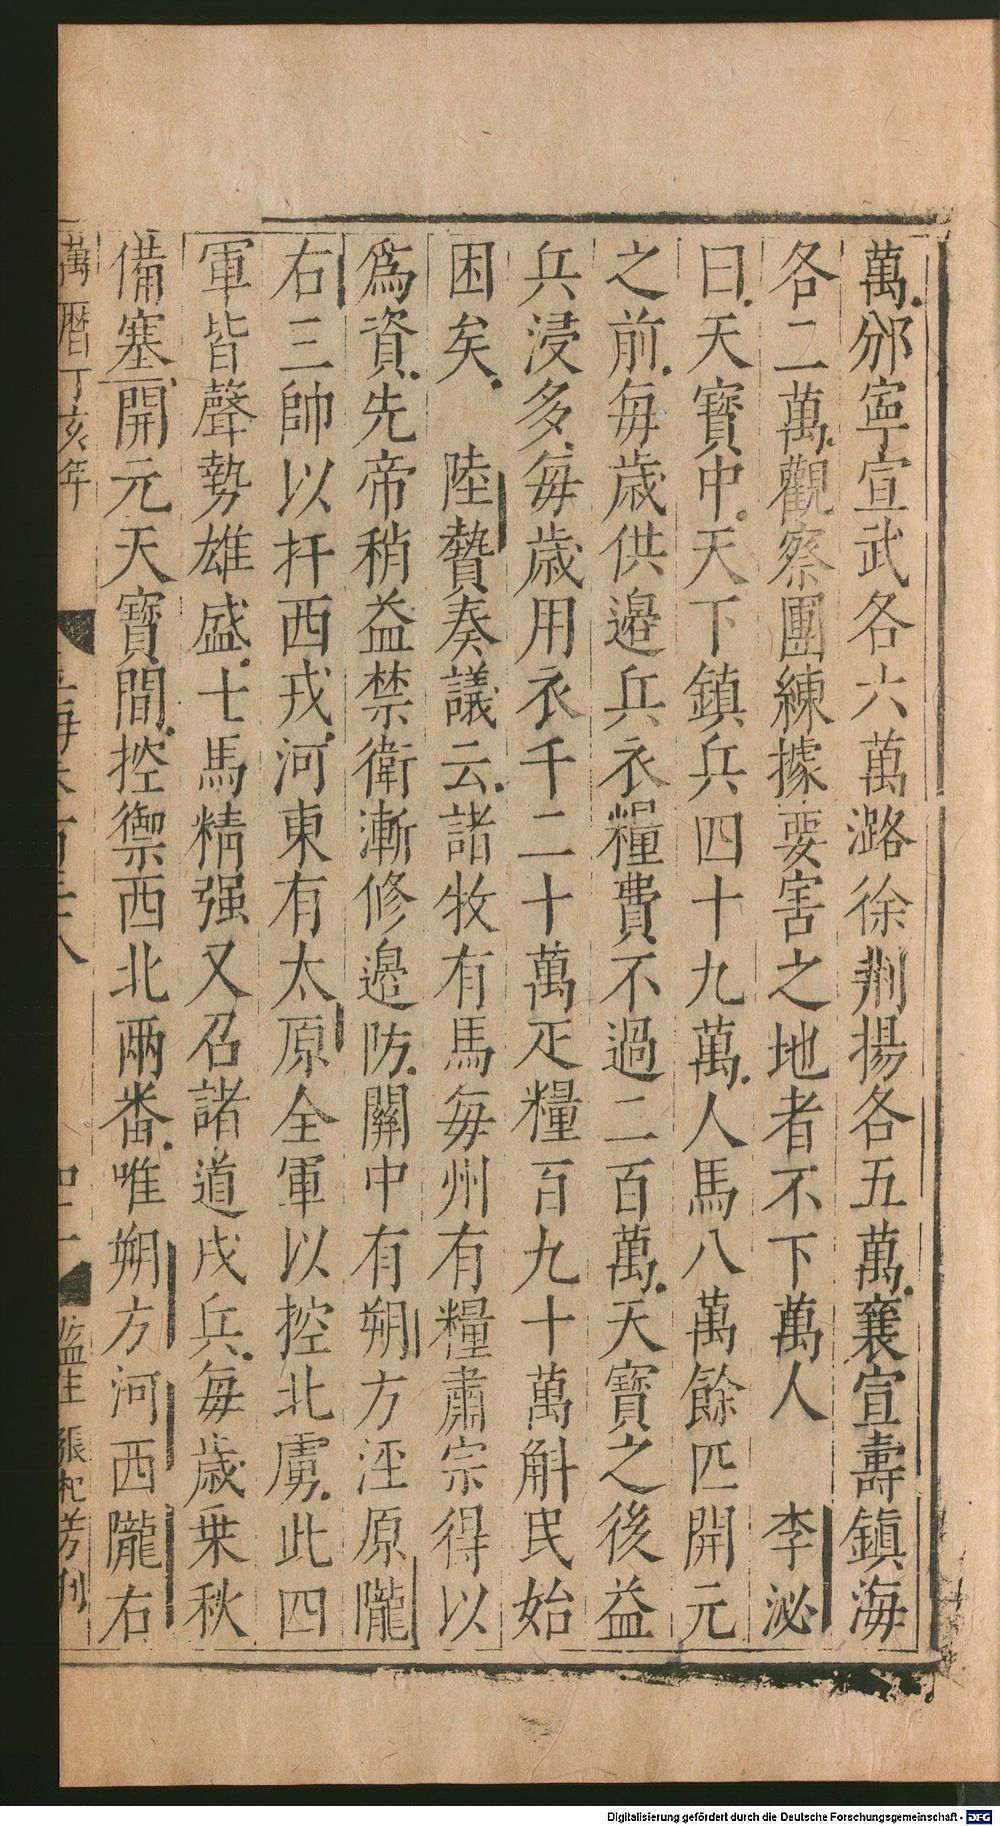 萬邠寧宣武各六萬潞徐荆揚各五萬襄宣壽鎮海
各二萬觀察團練據要害之地者不下萬人　李泌
曰天寶中天下鎮兵四十九萬人馬八萬餘匹開元
之前每歲供邉兵衣糧費不過二百萬天寶之後益
兵浸多每歲用衣千二十萬疋糧百九十萬斛民始
困矣　陸贄奏議云諸牧有馬每州有糧肅宗得以
爲資先帝稍益禁衛漸修邉防關中有朔方涇原隴
右三帥以扞西戎河東有太原全軍以控北虜此四
軍皆聲勢雄盛士馬精强又召諸道戍兵每歲乗秋
備塞開元天寶間控禦西北兩番唯朔方河西隴右
萬曆丁亥年
監生 張杞芳刊
Digitalisierung gefördert durch die Deutsche Forschungsgemeinschaft - DFG